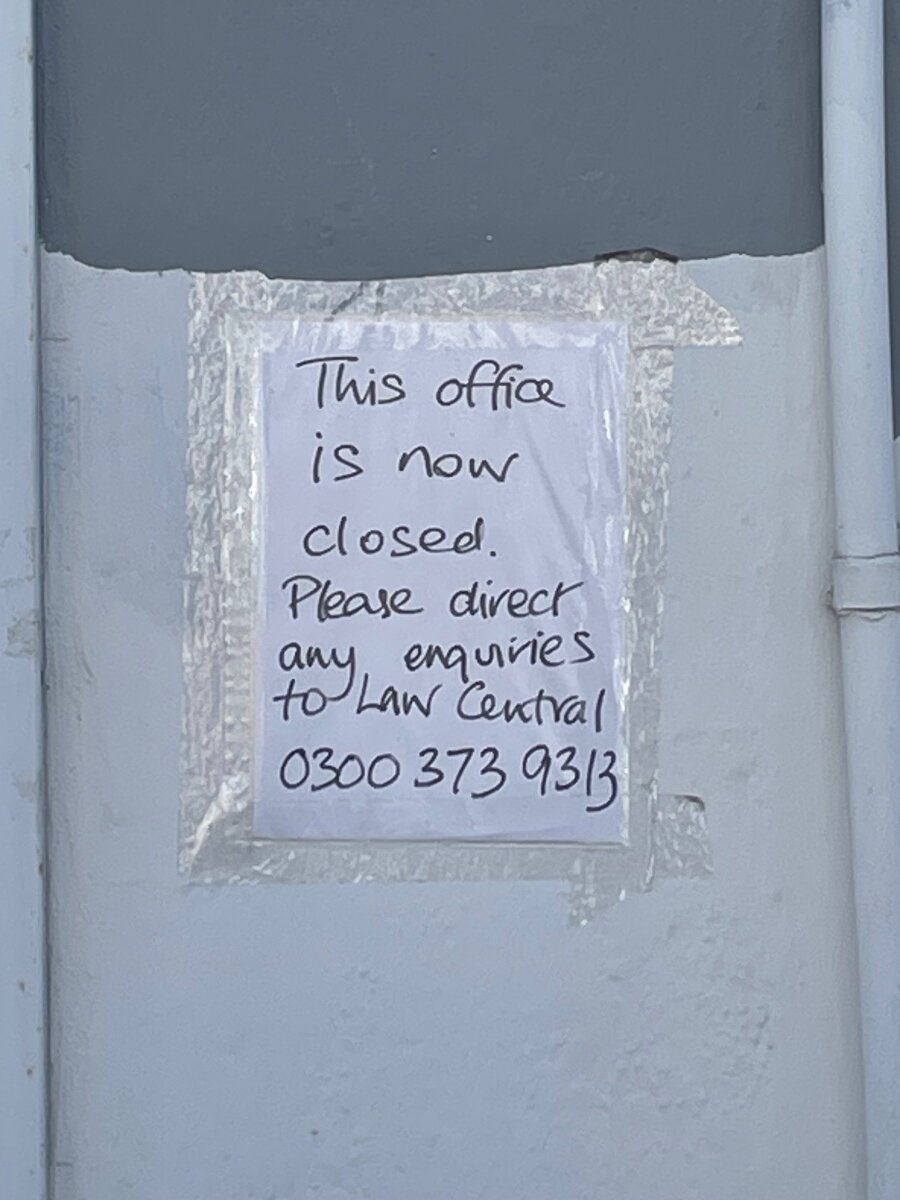 This office
is now
closed.
Please direct
any enquiries
to Law Central
0300 373 9313